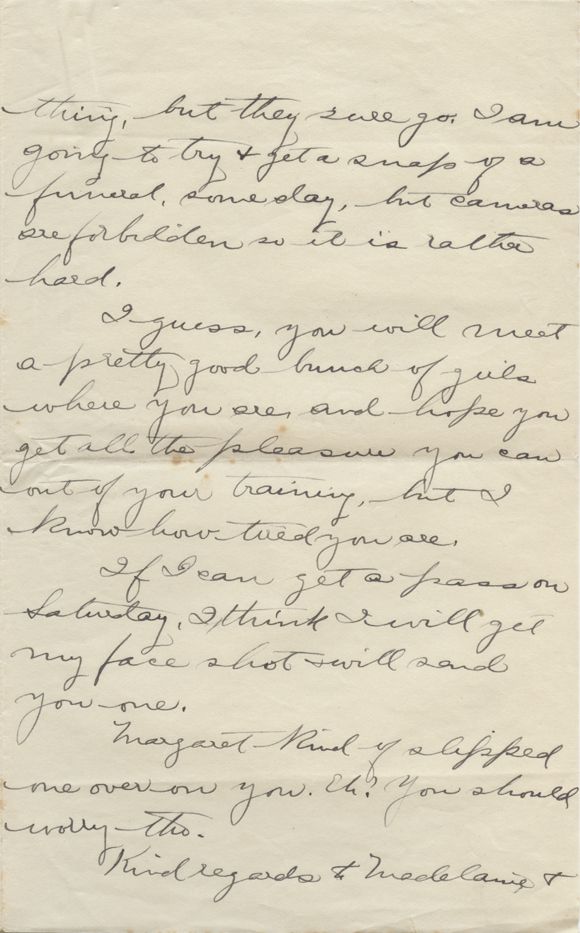 thing, but they sure go. I am
going to try + get a snap of a
funeral, some day, but cameras
are forbidden so it is rather
hard.
I guess, you will meet
a pretty good bunch of girls
where you are, and hope you
get all the pleasure you can
out of your training, but I
know how tired you are.
If I can get a pass on
Saturday, I think I will get
my face shot + will send
you one.
Margaret kind of slipped
one over on you. Eh? You should
worry tho.
Kind regards to Madelaine +